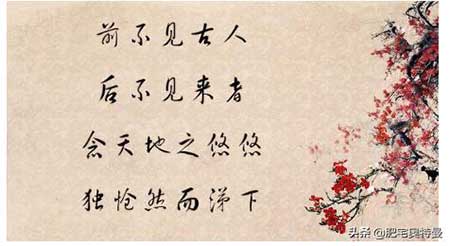 前不见古人
后不见来者
念天地之悠悠
独怆然而涕下
头条 @肥宅奥特曼